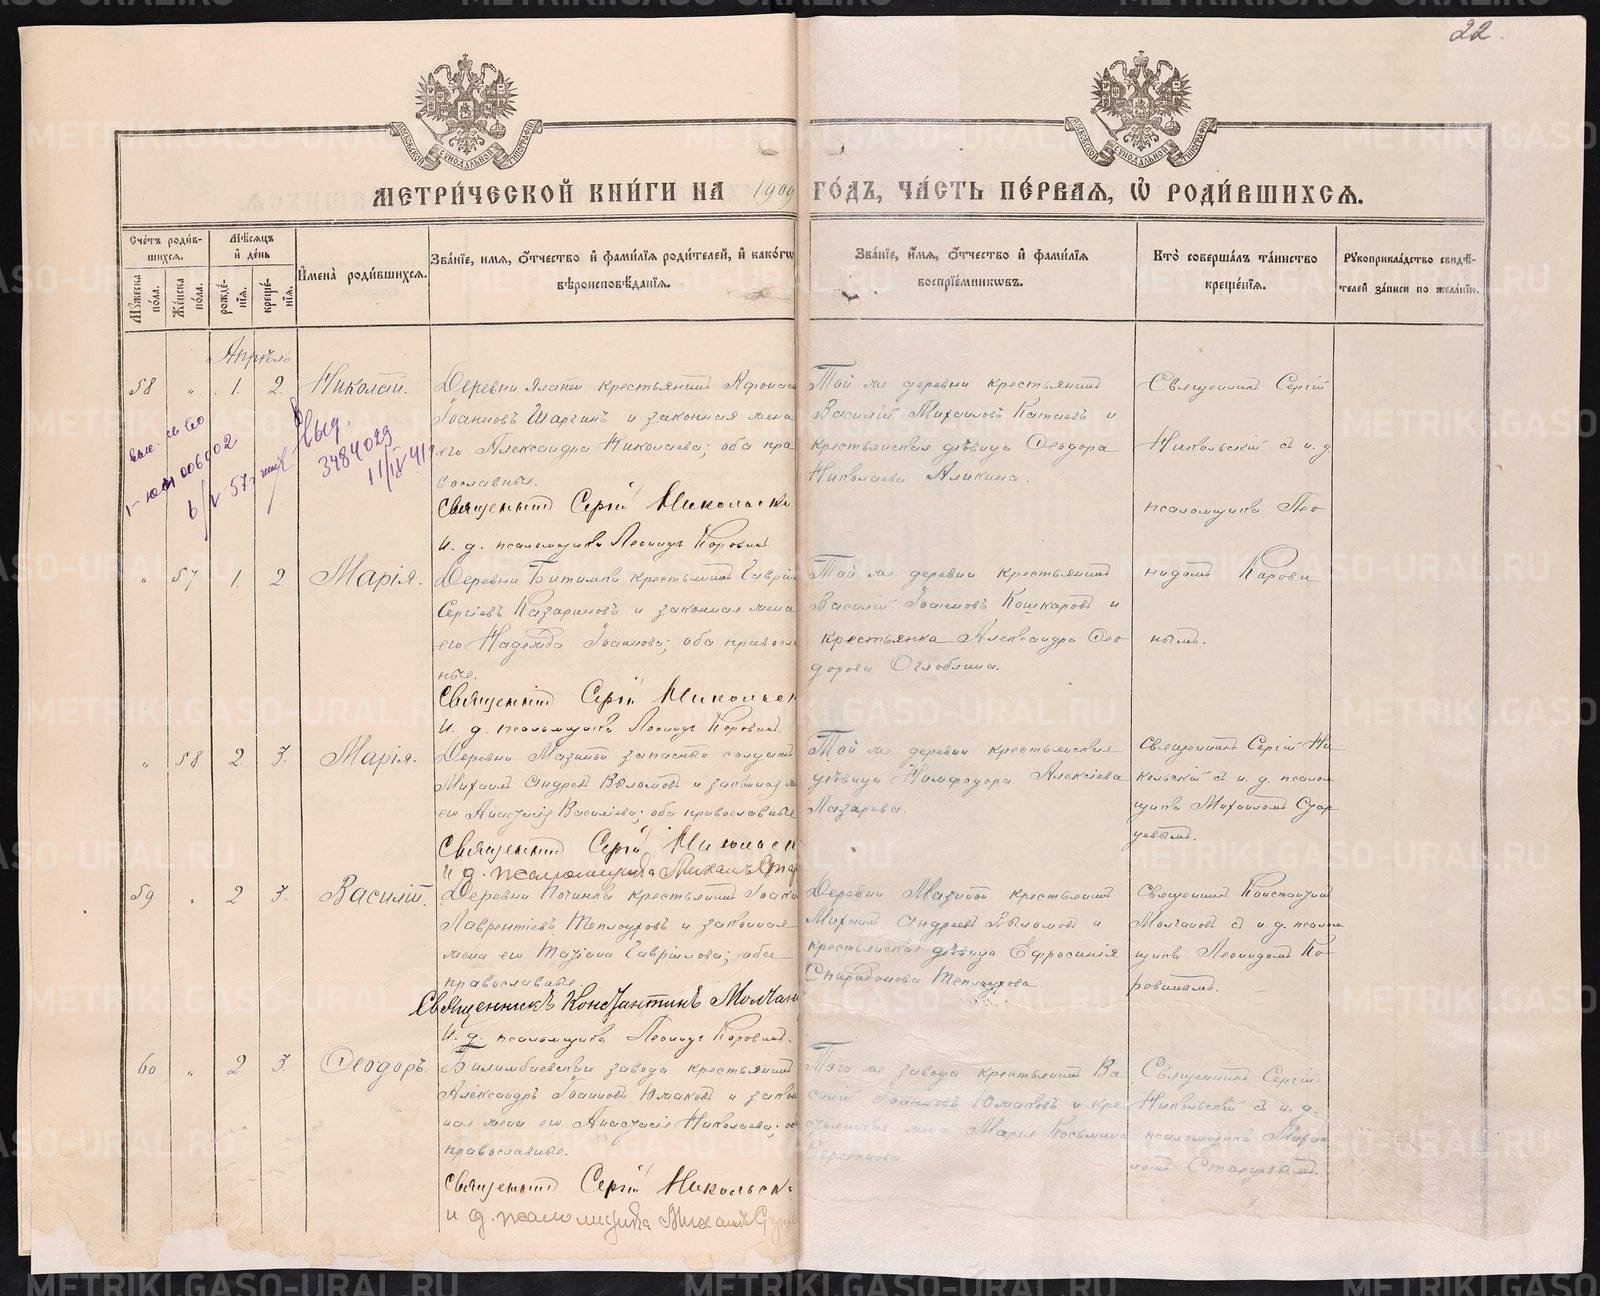 22.
МЕТРИ́ЧЕСКОЙ КНИ́ГИ НА 1909 ГО́ДЪ, ЧА́СТЬ ПЕ́РВАЯ, Ѡ РОДИ́ВШИХСЯ.
Сче́тъ роди́в-
шихся.
Му́жеска по́ла.
Же́нска по́ла.
Мѣ́сяцъ
и҆ де́нь
рожде́-
нїя.
креще́-
нїя.
И҆мена̀ роди́вшихся.
Зва́нїе, имя, ѻ҆́тчество и҆ фами́лїя роди́телей, и҆ како́гѡ
вѣроисповѣ́данїя.
Зва́нїе, и҆́мя, ѻ҆́тчество и҆ фами́лїя
воспрїе́мникѡвъ.
Кто̀ соверша́лъ та́инство
креще́нїя.
Рꙋкоприкла́дство свидѣ́-
телей за́писи по жела́нїю.
Апрѣль
58 " 1. 2. Николай.
Деревни крестьянинъ
Іоанновъ Шаргинъ и законная жена
его Александра Николаева; оба пра
вославные.
Священникъ Сергій Никольскі
И. д. псаломщика Леонидъ Коровинъ.
Той же деревни крестьянинъ
Василій Михаиловъ Катаевъ и
крестьянская дѣвица Ѳеодора
Николаева Аликина.
Священникъ Сергій
Никольскій съ и. д.
псаломщика Лео
нидомъ Корови
нымъ.
3484029
11/IV 41
" 57 1. 2 Марія.
Деревни Битимки крестьянинъ Гаврі
Сергіевъ Казариновъ и законная жена
его Надежда Іоаннова; оба правосла
ные.
Священникъ Сергій Никольск
И. д. псаломщика Леонидъ Коровинъ.
Той же деревни крестьянинъ
Василій Іоанновъ Кошкаровъ и
крестьянка Александра Ѳео
дорова Оглоблина.
" 58 2. 3. Марія.
Деревни Мазиной запасный солдатъ
Михаилъ Андреевъ и законная
его Анастасія Василіева; оба православные
Священникъ Сергій Никольск
И д. псаломщика Михаилъ Стар
Той же деревни крестьянская
дѣвица Нимфодора Алексіева
Лазарева.
Священникъ Сергій Ни
кольскій съ и. д. псалом
щика Михаиломъ Стар
цевымъ.
59 " 2 3. Василій.
Деревни Починка крестьянинъ
Лаврентіевъ Теплоуховъ и законная
жена его Татіана Гавріилова; оба
православные.
Священникъ Константинъ Молчан
И. д. псаломщика Леонидъ Коровинъ.
Деревни Мазиной крестьянинъ
Михаилъ Андреевъ и
крестьянская дѣвица Ефросинія
Спиридонова Теплоухова.
Священникъ Константинъ
Молчановъ съ и. д. псалом
щика Леонидомъ Ко
ровинымъ.
60 " 2 3. Ѳеодоръ.
Билимбаевскаго завода крестьянинъ
Александръ Іоанновъ Юмаковъ и закон
ная жена его Анастасія Николаева; об
православные.
Священникъ Сергій Никольск
и д. псаломщика Михаилъ
Того же завода крестьянинъ Ва
силій Іоанновъ Юмаковъ и кре
стьянская жена Марія Косьмина
Берсенева.
Священникъ Сергій
Никольскій съ и. д.
псаломщика Михаи
ломъ Старцевымъ.
METRIKI.GASO-URAL.RU